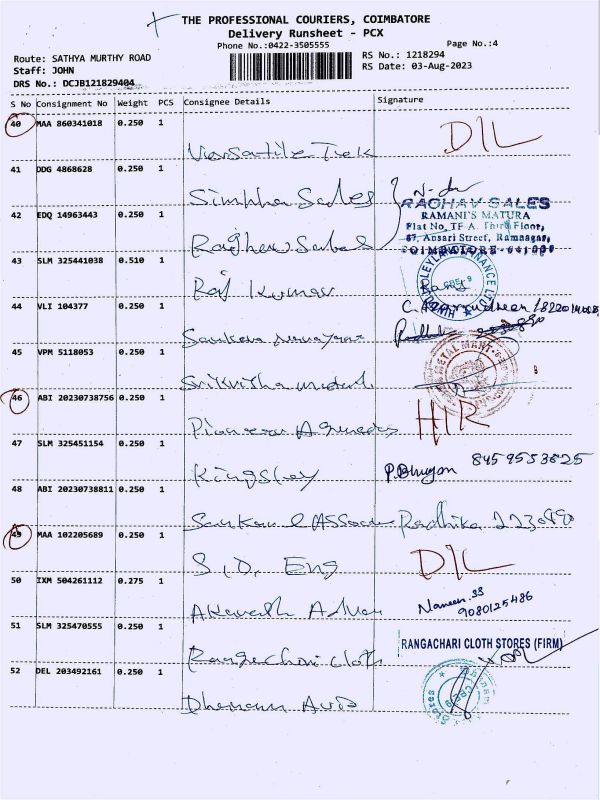 THE PROFESSIONAL COURIERS, COIMBATORE
Delivery Runsheet - PCX
Phone No.:0422-3505555
Page No.:4
Route: SATHYA MURTHY ROAD
RS No.: 1218294
Staff: JOHN
RS Date: 03-Aug-2023
DRS No.: DCJB121829404
S No Consignment No Weight PCS Consignee Details Signature
40 MAA 860341018 0.250 1
DIL
Versatile Trek
41 DDG 4868628 0.250 1
Simpha Sales
RAGHAV SALES
42 EDQ 14963443 0.250 1
RAMANI'S MATURA
Flat No, TF-A, Third Floor,
67, Ansari Street, Ramnagar,
Raghav Sales
COIMBATORE-641009
43 SLM 325441038 0.510 1
Raj Kumar
44 VLI 104377 0.250 1
45 VPM 5118053 0.250 1
46 ABI 20230738756 0.250 1
HIR
Pioneer Agencies
47 SLM 325451154 0.250 1
Kingsley
8459553625
48 ABI 20230738811 0.250 1
Radhika
49 MAA 102205689 0.250 1
DIL
S.D. Eng
50 IXM 504261112 0.275 1
Naneen
9080125486
51 SLM 325470555 0.250 1
RANGACHARI CLOTH STORES (FIRM)
Rangachari cloth
52 DEL 203492161 0.250 1